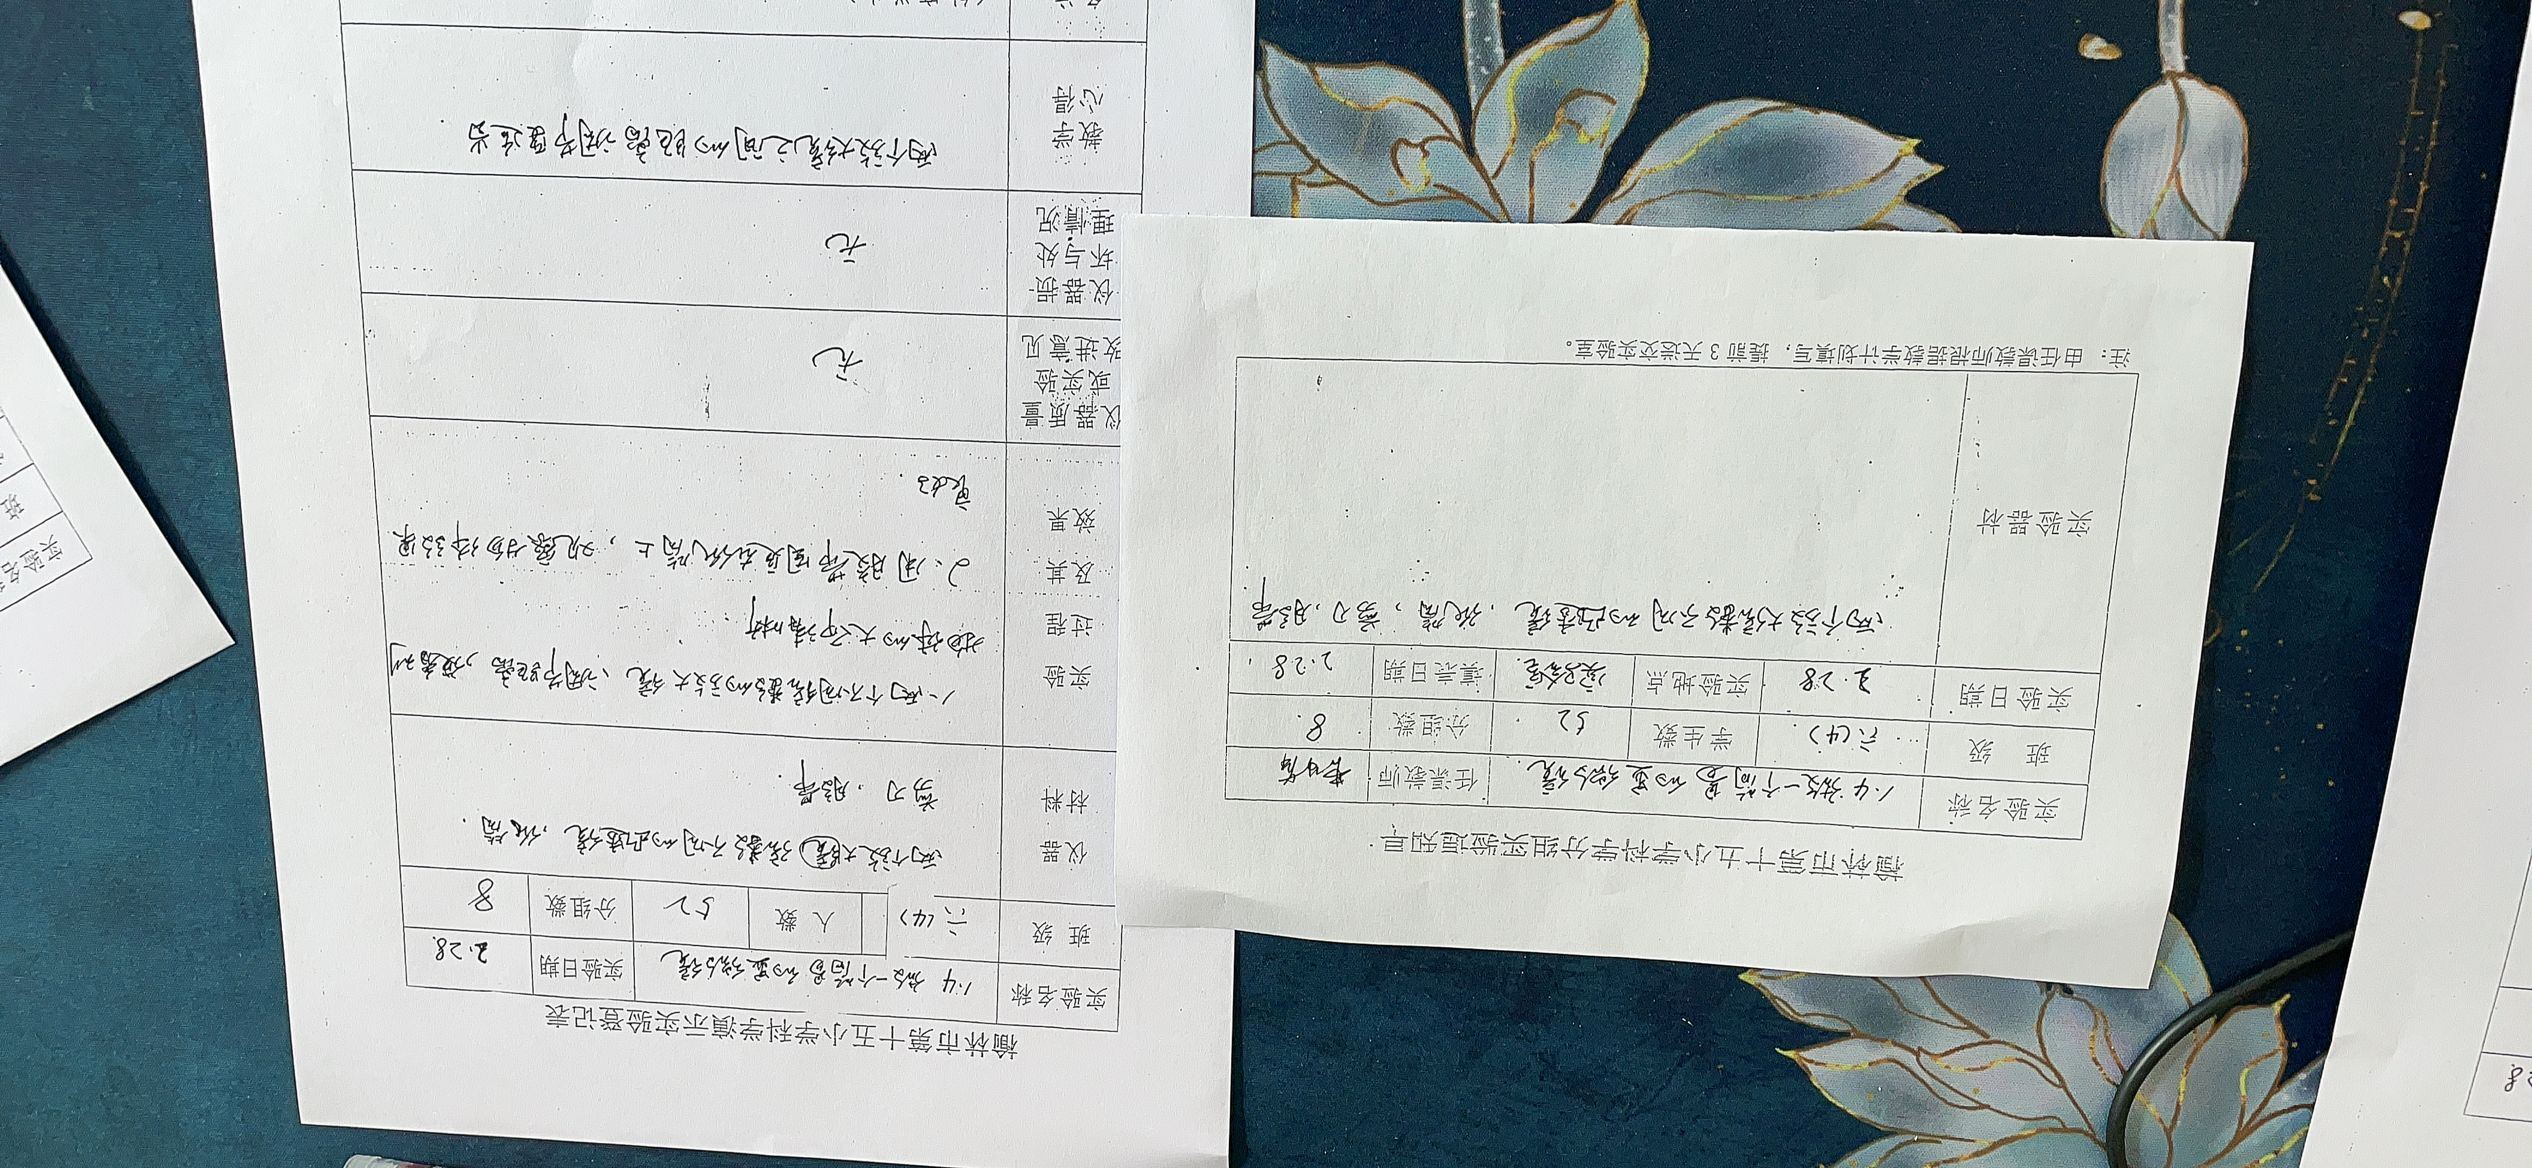 榆林市第十五小学科学演示实验登记表
实验名称 1.4 做一个简易的显微镜 实验日期 2.28
班 级 六(4) 人 数 52 分组数 8
仪器材料 两个放大镜倍数不同的凸透镜,纸筒.
剪刀,胶带.
实验过程及其效果 1、两个不同倍数的放大镜、调节距离,
物体的大小清晰.
2、用胶带固定在纸筒上,观察物体效果
仪器质量或实验改进意见 无
仪器损坏与处理情况 无
教学心得 两个放大镜之间的距离调节适当
榆林市第十五小学科学分组实验通知单
实验名称 1.4 做一个简易的显微镜. 任课教师
班 级 六(4) 学生数 52 分组数 8
实验日期 2.28 实验地点 实验室 填表日期 2.28
实验器材 两个放大倍数不同的凸透镜,纸筒,剪刀,胶带
注:由任课教师根据教学计划填写,提前 3 天送交实验室。
实验名
班